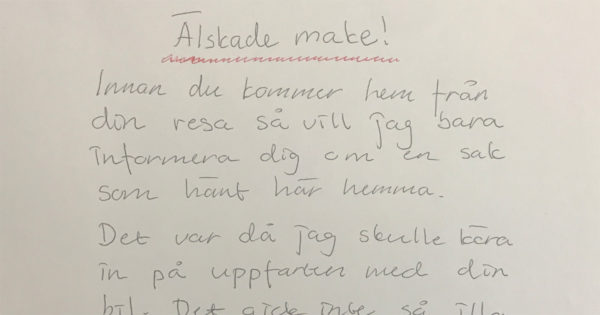 Älskade make!
Innan du kommer hem från
din resa så vill jag bara
informera dig om en sak
som hänt här hemma.
Det var då jag skulle köra
in på uppfarten med din
bil. Det gick inte så illa